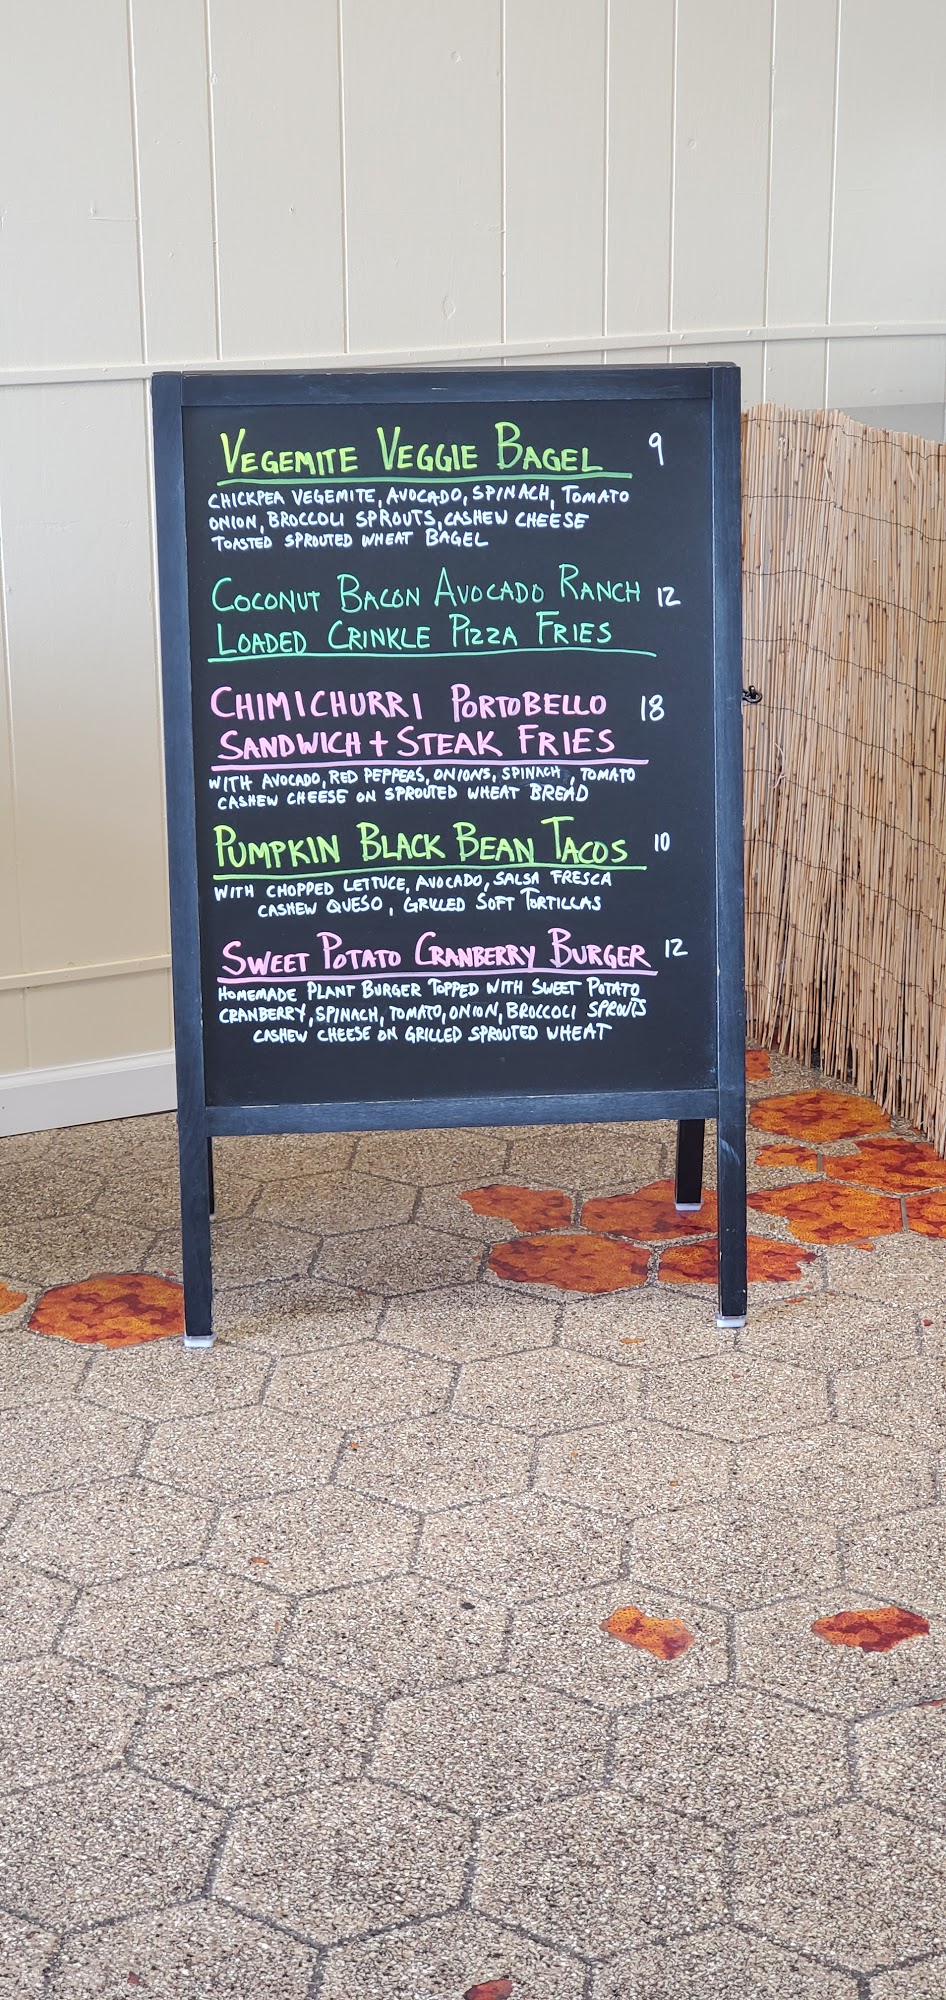 VEGEMITE VEGGIE BAGEL 9
CHICKPEA VEGEMITE, AVOCADO, SPINACH, TOMATO
ONION, BROCCOLI SPROUTS, CASHEW CHEESE
TOASTED SPROUTED WHEAT BAGEL
COCONUT BACON AVOCADO RANCH 12
LOADED CRINKLE PIZZA FRIES
CHIMICHURRI PORTOBELLO 18
SANDWICH + STEAK FRIES
WITH AVOCADO, RED PEPPERS, ONIONS, SPINACH, TOMATO
CASHEW CHEESE ON SPROUTED WHEAT BREAD
PUMPKIN BLACK BEAN TACOS 10
WITH CHOPPED LETTUCE, AVOCADO, SALSA FRESCA
CASHEW QUESO, GRILLED SOFT TORTILLAS
SWEET POTATO CRANBERRY BURGER 12
HOMEMADE PLANT BURGER TOPPED WITH SWEET POTATO
CRANBERRY, SPINACH, TOMATO, ONION, BROCCOLI SPROUTS
CASHEW CHEESE ON GRILLED SPROUTED WHEAT